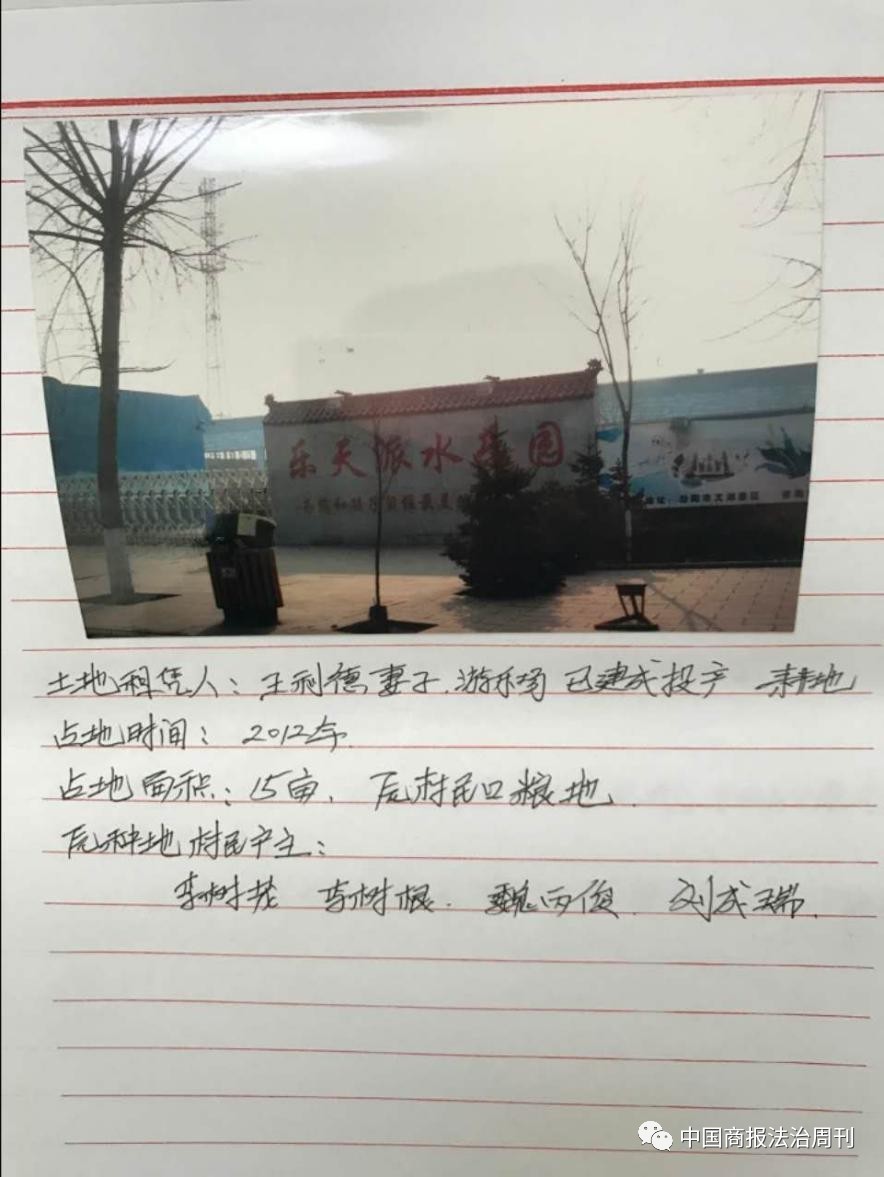 乐天派水乐园
土地租凭人：王利德妻子.游乐场 已建成投产 耕地
占地时间：2012年.
占地面积：15亩、原村民口粮地.
原种地村民户主：
李树茂 李树根. 魏丙俊. 刘成瑞.
中国商报法治周刊